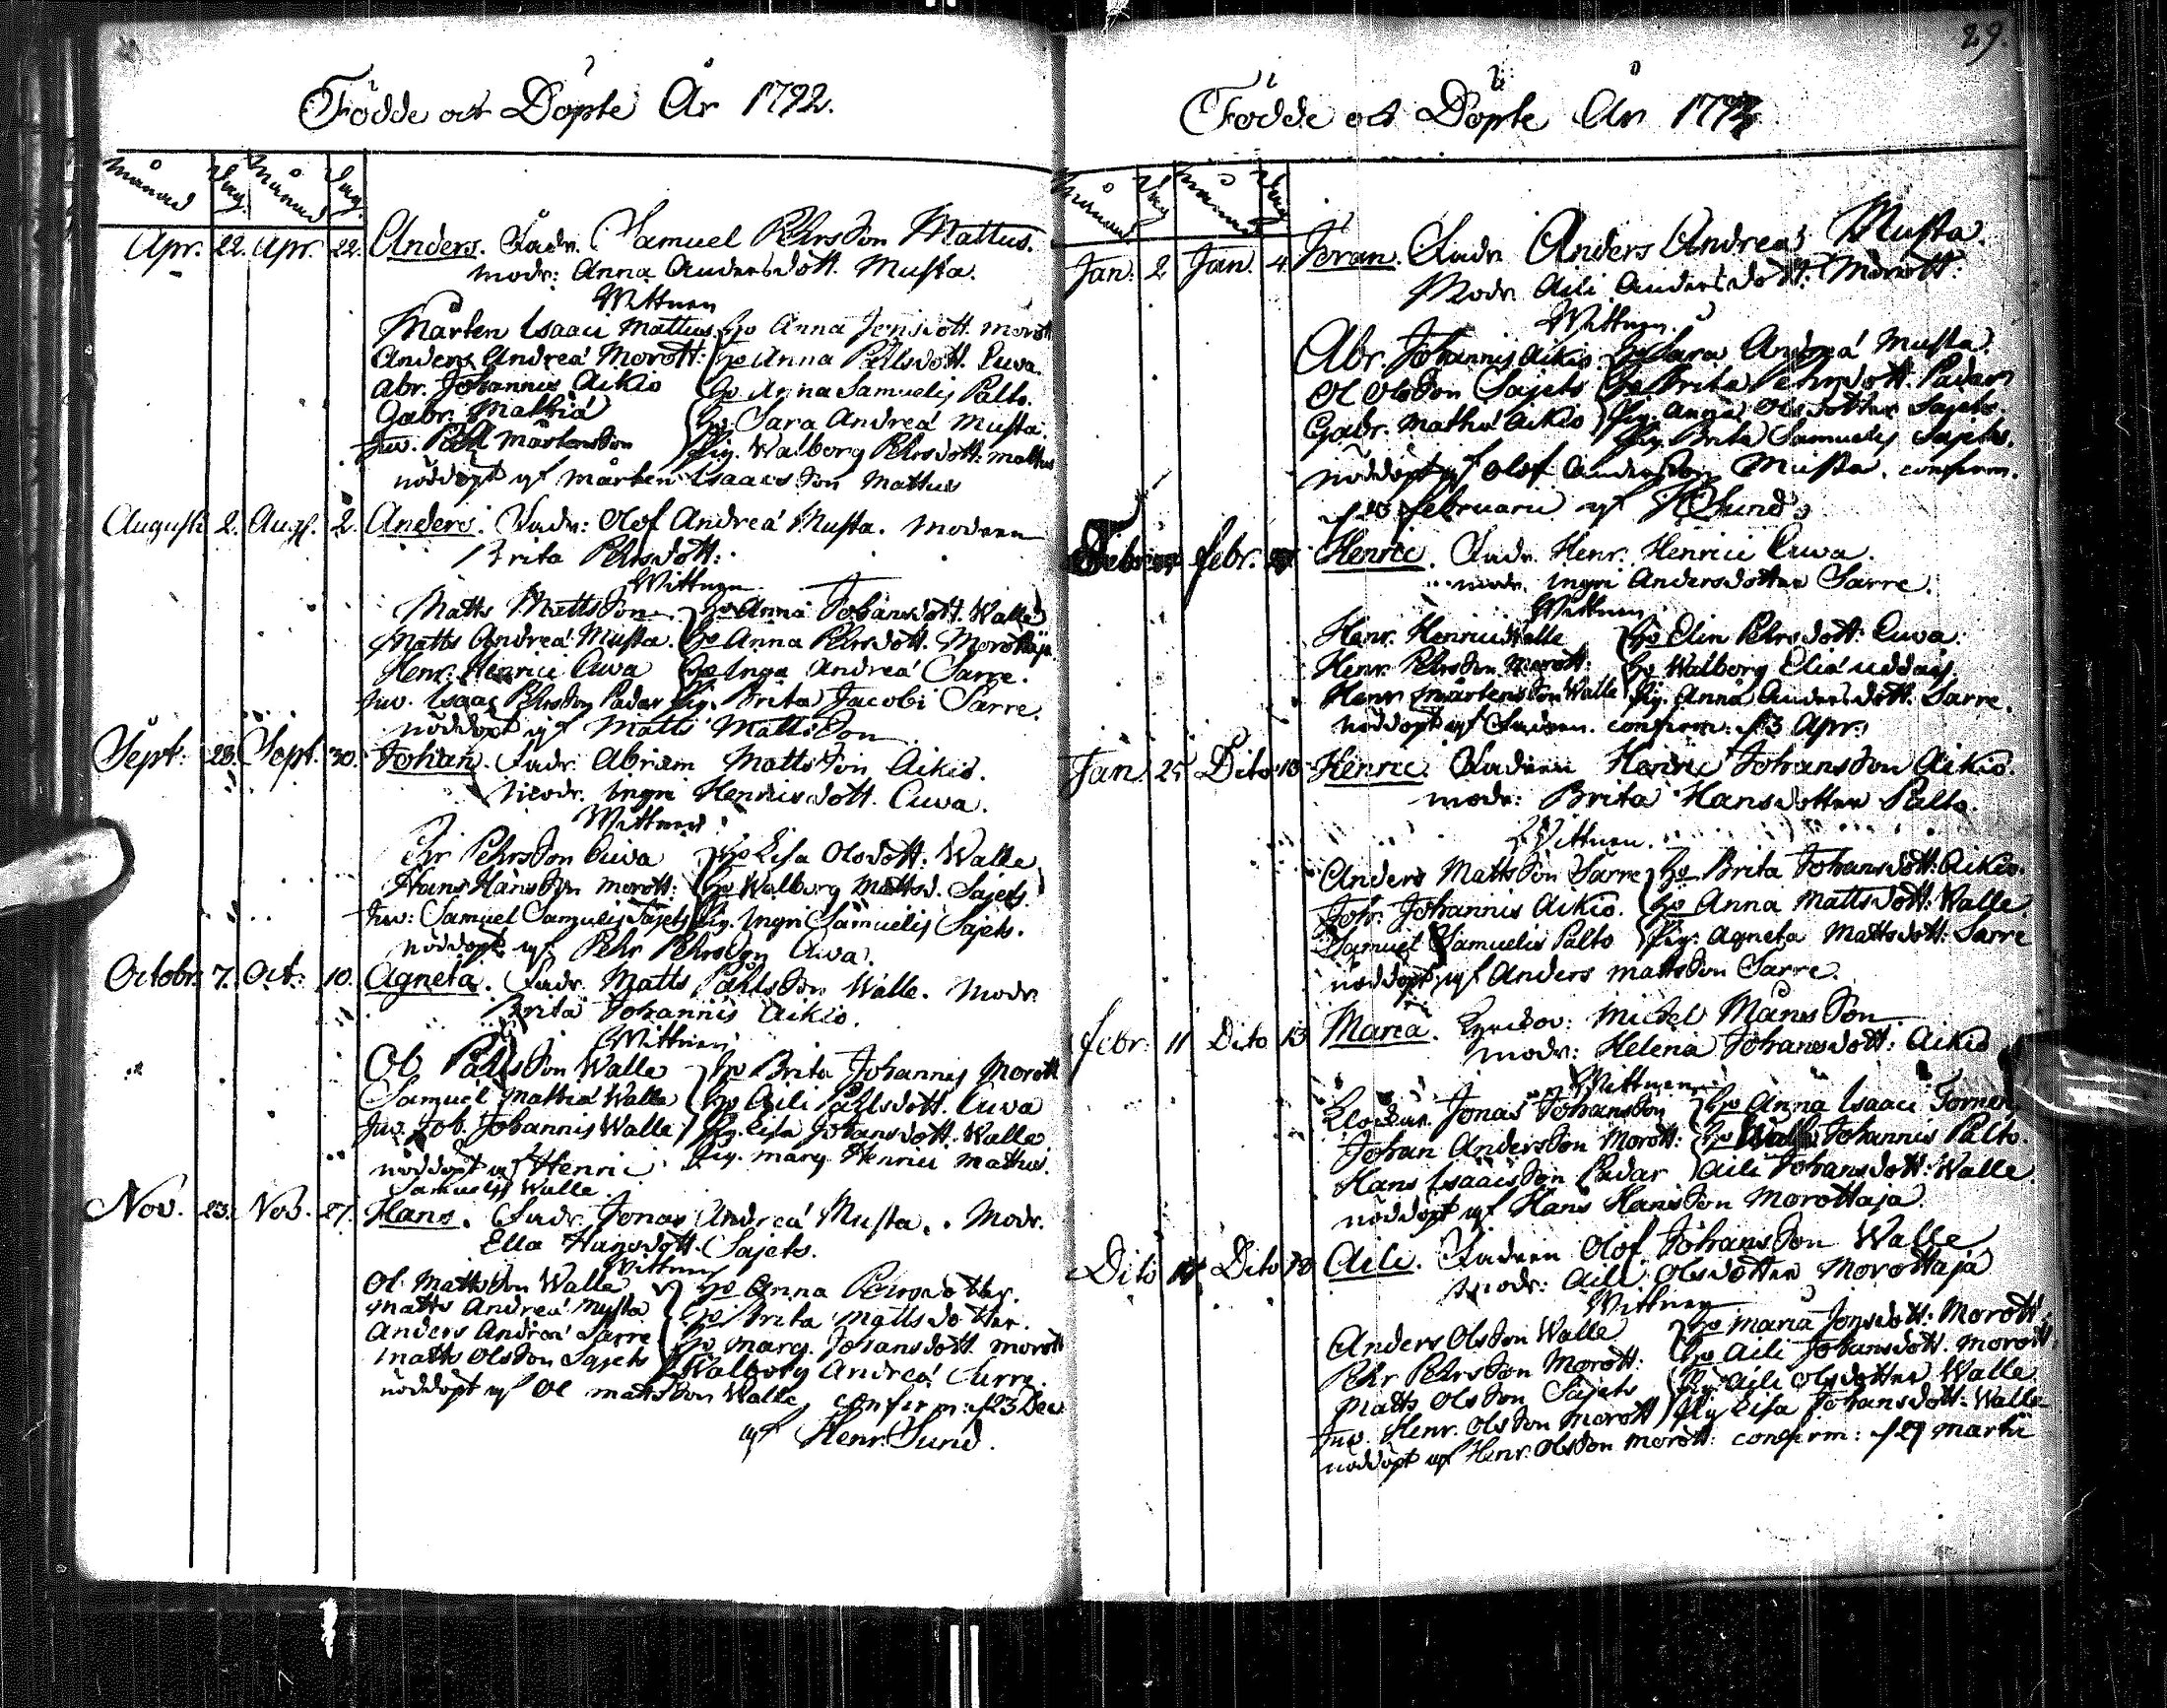 Födde och Döpte År 1792.
Månad Dag. Månad Dag.
Apr. 22. Apr. 22. Anders. Fadr. Samuel Pehrsson Mattus.
modr: Anna Andersdott. Musta.
Wittnen
Mårten Isaaci Mattus hu Anna Jonsdott. Morott
Anders Andreæ Morott: hu Anna Påhlsdott. Cuva.
Abr. Johannis Aikio hu Anna Samuelis Palto.
Gabr. Mathiæ hu Sara Andreæ Musta.
Påhl Mårtensson Pig. Walborg Pehrsdott: mattus
nöddöpt af Mårten Isaacsson Mattus
Augusti 2. Aug. 2. Anders. Fadr: Olof Andreæ Musta. Modren
Brita Pehrsdott:
Wittnen
Matts Mattsson hu Anna Johansdott. Walle
Matts Andreæ Musta. hu Anna Pehrsdott. Morottaja.
Henr: Henrici Cuva hu Inga Andreæ Sarre.
Isaac Pehrsson Padar Pig. Brita Jacobi Sarre.
nöddöpt af Matts Mattsson
Sept: 28. Sept. 30. Johan. Fadr. Abram Mattsson Aikio.
Modr. Ingri Henricsdott. Cuva.
Wittnen
Pehrsson Cuva hu Lisa Olsdott. Walle
Hans Hansson Morott: hu Walborg Mattsd. Sajets
Samuel Samuelis Sajets Pig. Ingri Samuelis Sajets.
nöddöpt af Pehr Pehrsson Cuva.
Octobr: 7. Oct: 10. Agneta. Fadr. Matts Påhlsson Walle. Modr.
Brita Johannis Aikio.
Wittnen
Ol. Påhlsson Walle hu Brita Johannis Morott
Samuel Mathiæ Walle hu Aili Påhlsdott. Cuva
Joh. Johannis Walle Pig. Lisa Johansdott. Walle
nöddöpt af Henric Pig. Marg. Henrici Mattus.
Samuelis Walle.
Nov. 23. Nov. 27. Hans. Fadr. Jonas Andreæ Musta. Modr.
Ella Hansdott. Sajets.
Wittnen
Ol Mattsson Walle hu Anna Pehrsdotter.
Matts Andreæ Musta hu Brita Mattsdotter.
Anders Andreæ Sarre hu Marg. Johansdott. Morott
Matts Olsson Sajets Walborg Andreæ Sarre.
nöddöpt af Ol Mattsson Walle, confirm: d 23 Dec.
af Henr. Sund.
29.
Födde och Döpte År
Månad Dag Månad Dag
Jan. 2 Jan. 4. Joran. Fadr. Anders Andreæ Musta.
Modr. Aili Andersdott. Morott:
Wittnen.
Abr. Johannis Aikio hu Sara Andreæ Musta.
Ol Olsson Sajets hu Brita Pehrsdott. Padar
Gabr. Mathiæ Aikio Pig. Anna Olsdotter Sajets.
Pig. Brita Samuelis Sajets.
nöddöpt af Olof Andersson Musta. confirm.
februarii af H Sund
febr. Henric. Fadr. Henr. Henrici Cuva.
modr. Ingri Andersdotter Sarre.
Wittnen
Henr. Henrici Walle hu Elin Pehrsdott: Cuva.
Henr. Pehrsson Morott: hu Walborg Eliæ uddas
Henr Mårtensson Walle Pig. Anna Andersdott. Sarre.
nöddöpt af Fadren. confirm: d 3 Apr:
Jan. 25 Dito 10 Henric. Fadren Henric Johansson Aikio.
modr: Brita Hansdotter Palto.
Wittnen.
Anders Mattsson Sarre hu Brita Johansdott: Aikio.
Joh. Johannis Aikio. hu Anna Mattsdott: Walle.
Samuel Samuelis Palto Pig. Agneta Mattsdott: Sarre
nöddöpt af Anders Mattsson Sarre.
febr: 11 Dito 13 Maria. Michel Månsson
modr: Helena Johansdott: Aikio
Wittnen
Klockar. Jonas Johansson hu Anna Isaaci Fornen
Johan Andersson Morott: hu Johannis Palto.
Hans Isaacsson Padar Aili Johansdott: Walle.
nöddöpt af Hans Hansson Morottaja.
Dito Dito Aili. Fadren Olof Johansson Walle
modr: Aili Olsdotter Morottaja
Wittnen
Anders Olsson Walle hu Maria Jonsdott: Morott
Pehr Pehrsson Morott: hu Aili Johansdott. Morott
Matts Olsson Sajets Pig. Aili Olsdotter Walle
Henr. Olsson Morott Pig Lisa Johansdott: Walle
nöddöpt af Henr. Olsson Morott: confirm: d 29 Martii